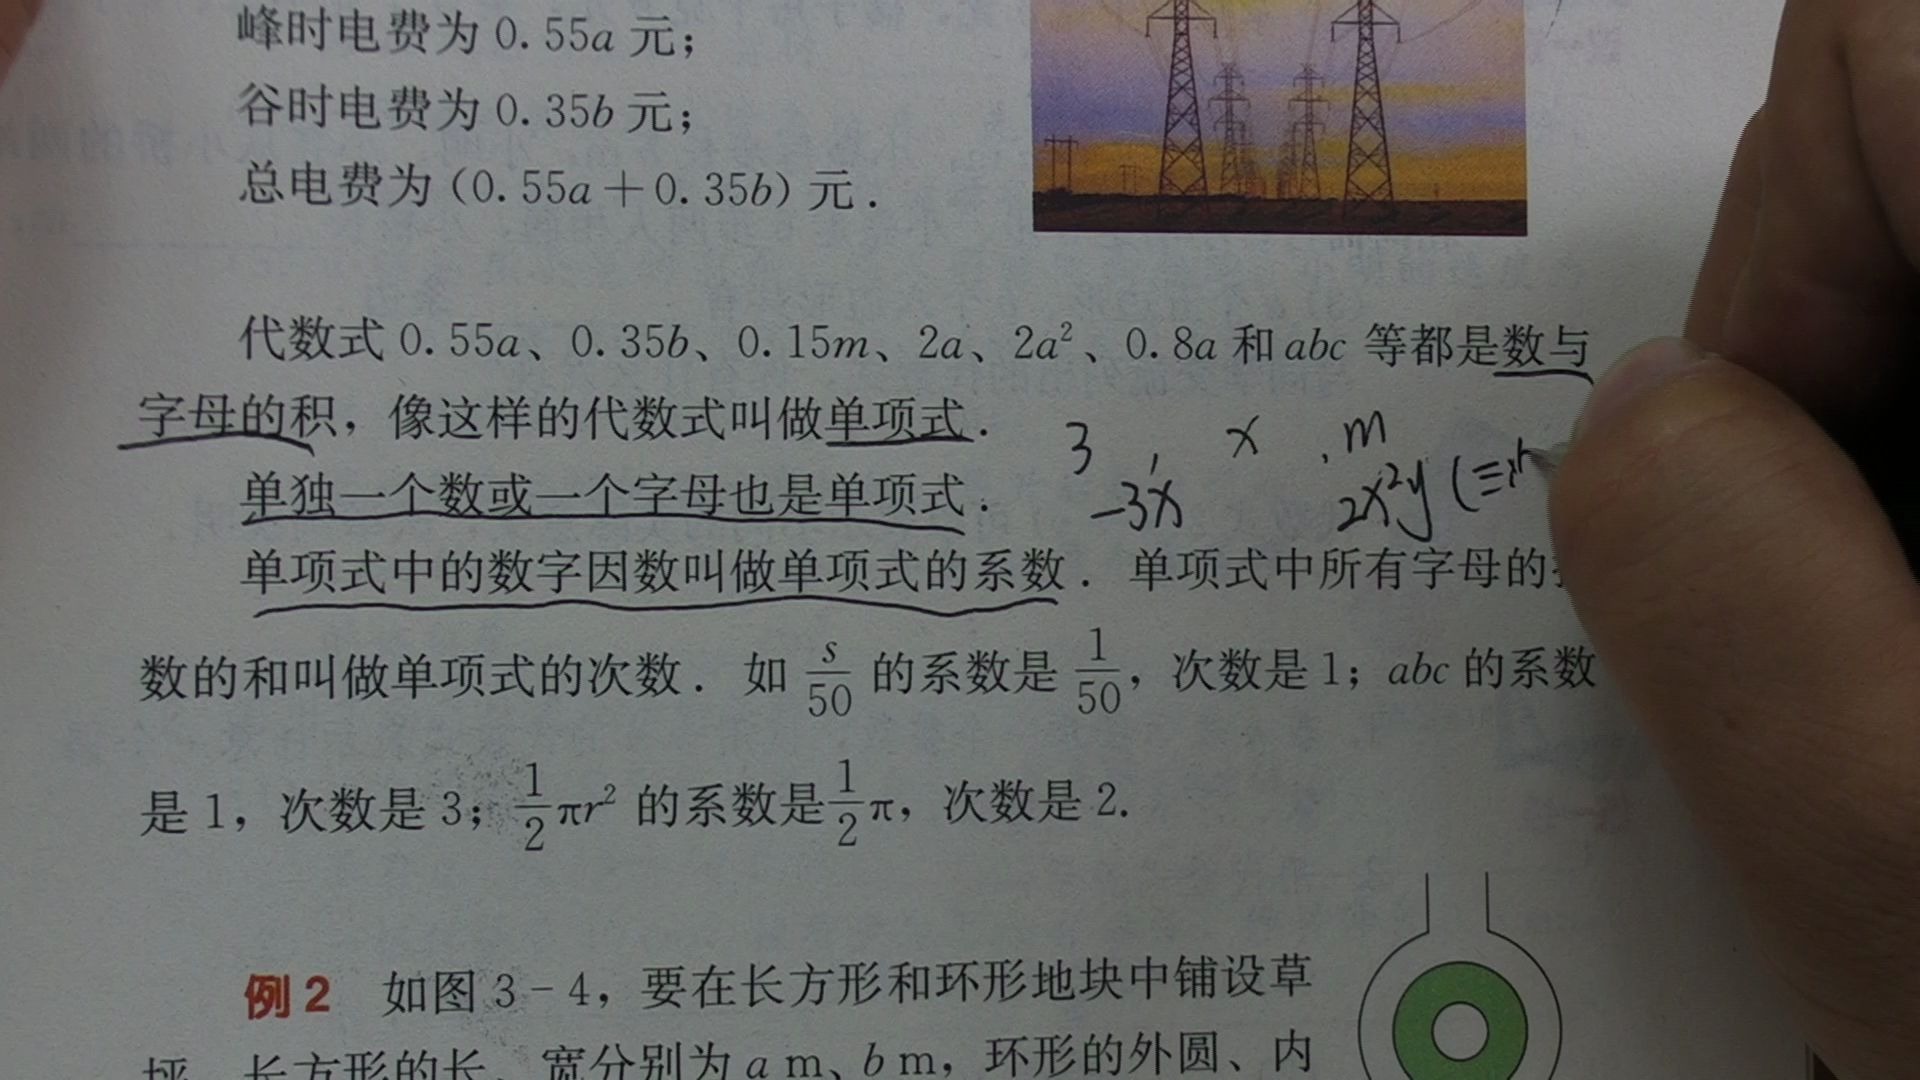 峰时电费为 0.55a 元；
谷时电费为 0.35b 元；
总电费为 (0.55a＋0.35b) 元．
代数式 0.55a、0.35b、0.15m、2a、2a²、0.8a 和 abc 等都是数与
字母的积，像这样的代数式叫做单项式．
3 , x , m
单独一个数或一个字母也是单项式．
-3x 2x²y (三
单项式中的数字因数叫做单项式的系数．单项式中所有字母的
数的和叫做单项式的次数．如 s/50 的系数是 1/50，次数是 1；abc 的系数
是 1，次数是 3；1/2 πr² 的系数是 1/2 π，次数是 2.
例2 如图 3-4，要在长方形和环形地块中铺设草
坪，长方形的长、宽分别为 a m、b m，环形的外圆、内